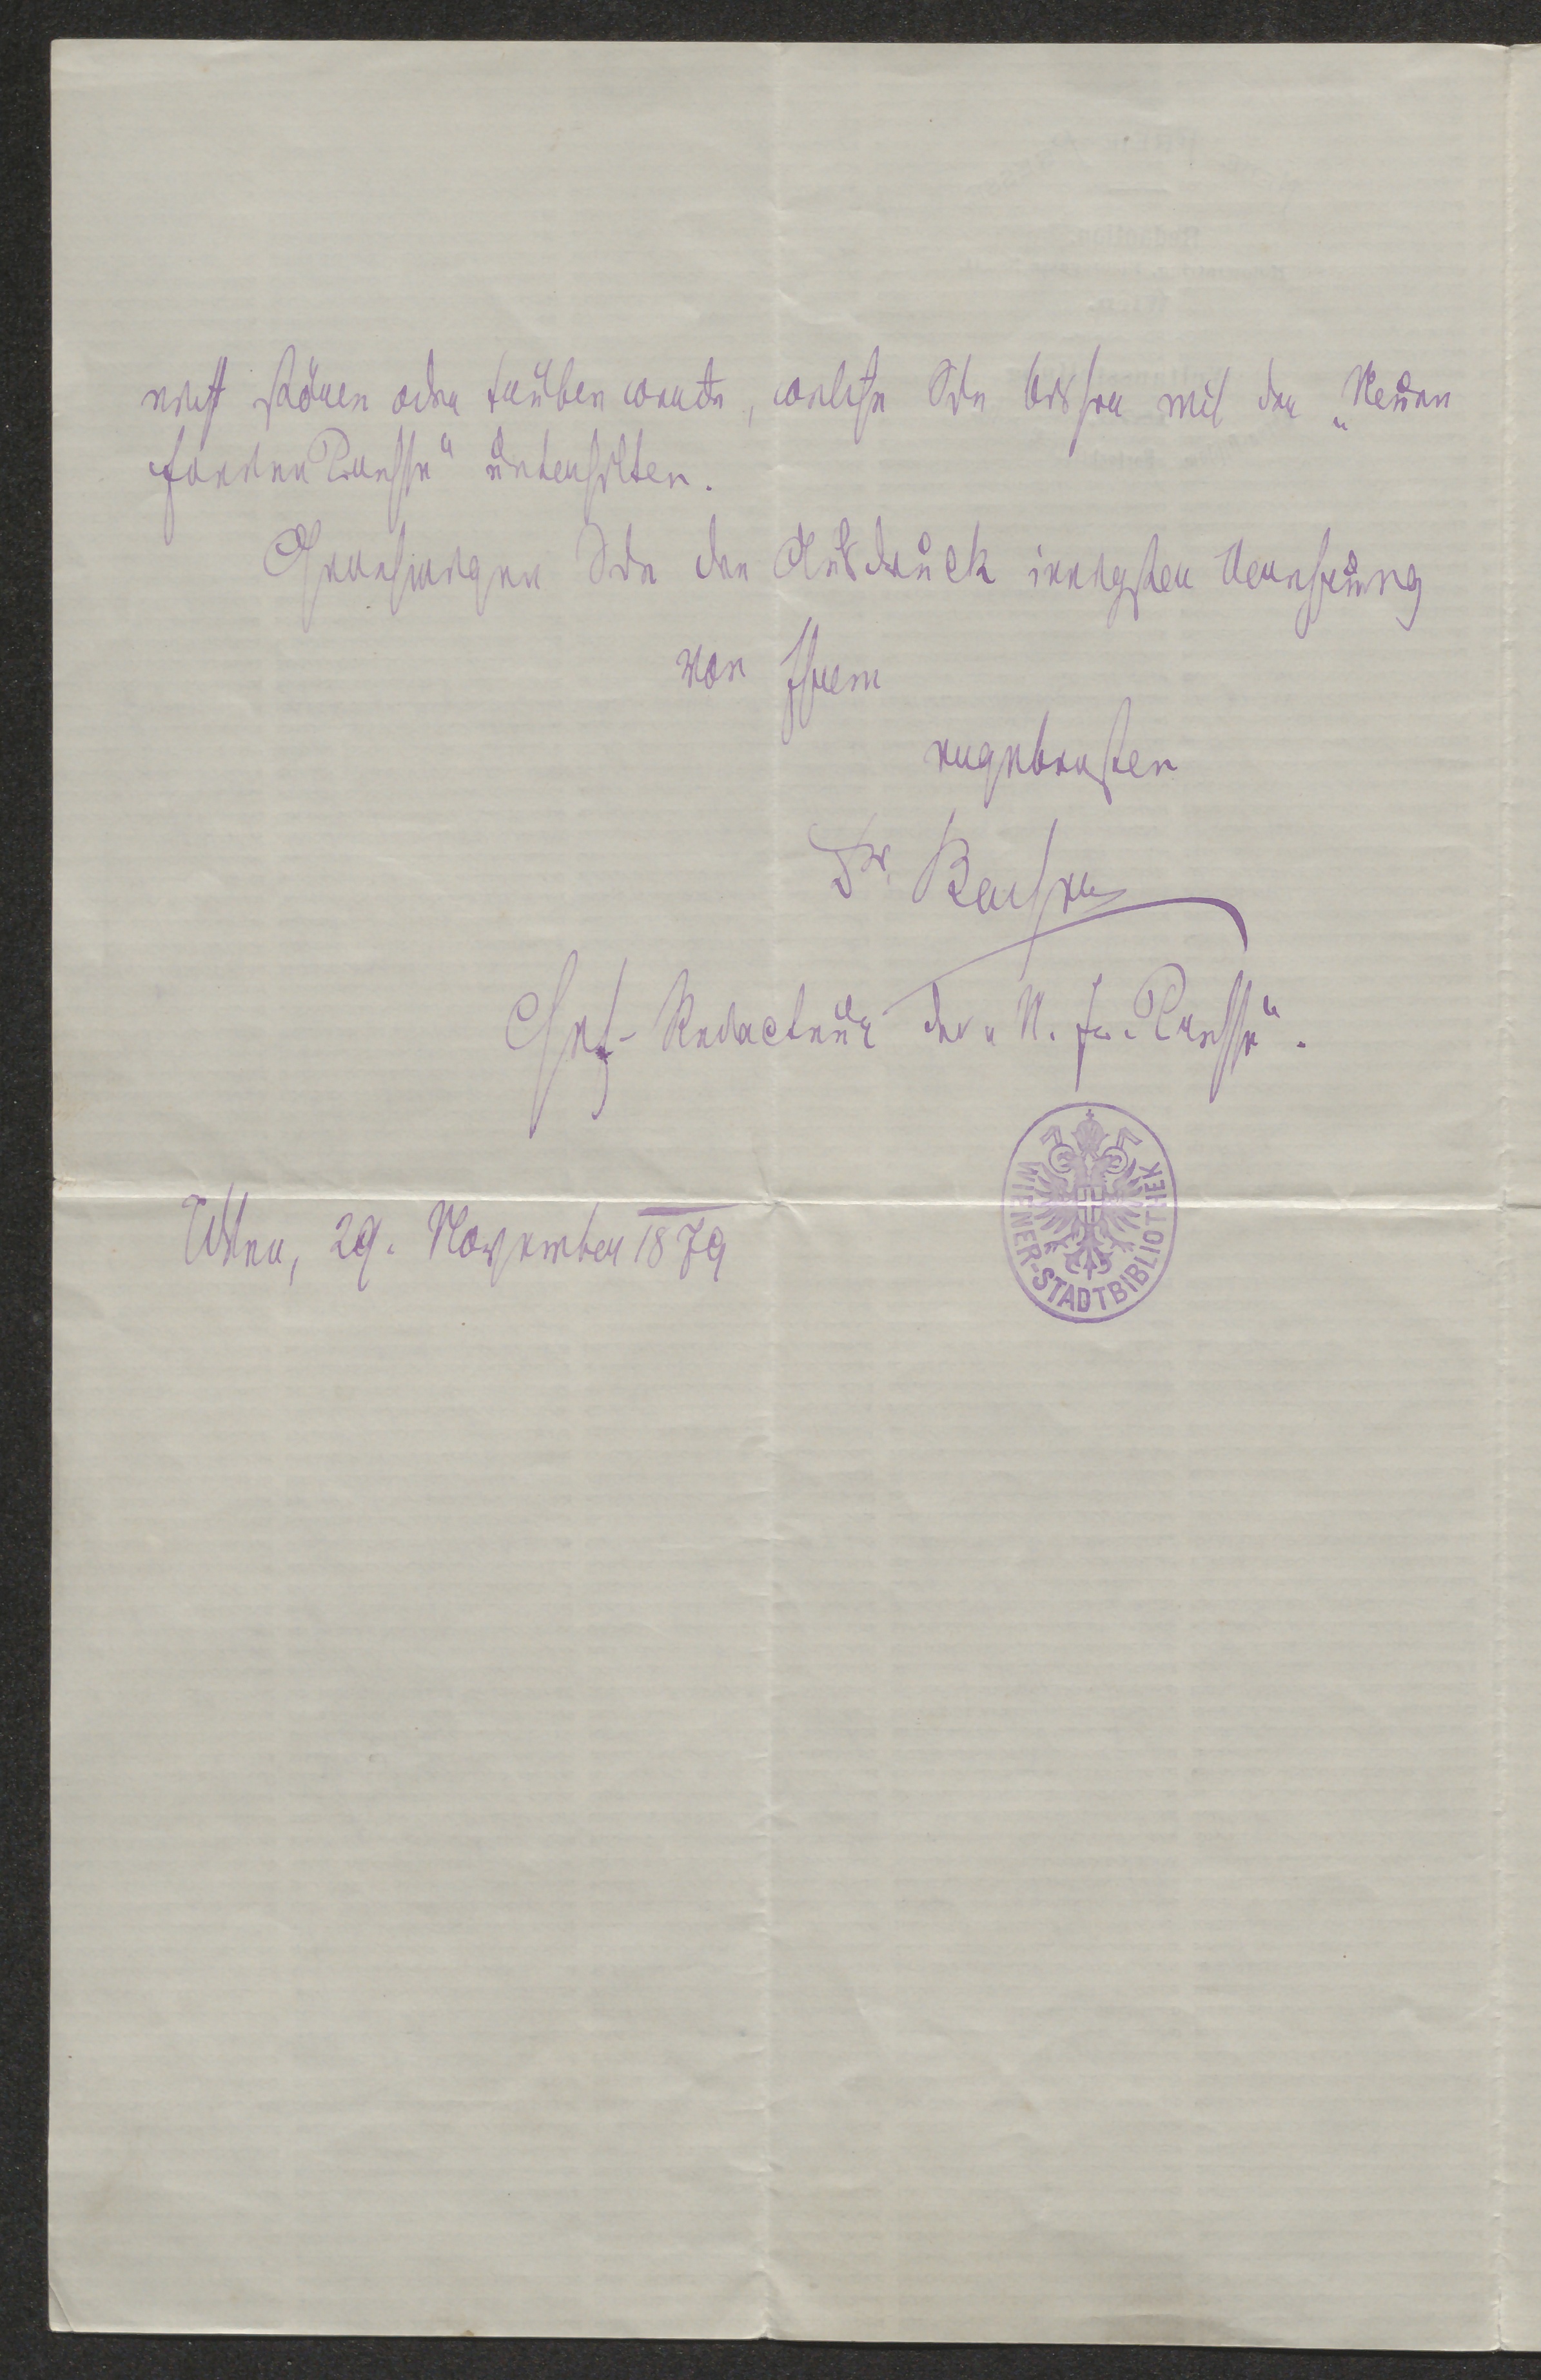 nicht stören oder trüben werde, welche Sie bisher mit der „Neuen
freien Presse“ unterhielten.
Genehmigen Sie den Ausdruck innigster Verehrung
von Ihrem
ergebensten
Dr. Bacher
Chef-Redacteur der „N. fr. Presse“.
Wien, 29. November 1879
WIENER-STADTBIBLIOTHEK